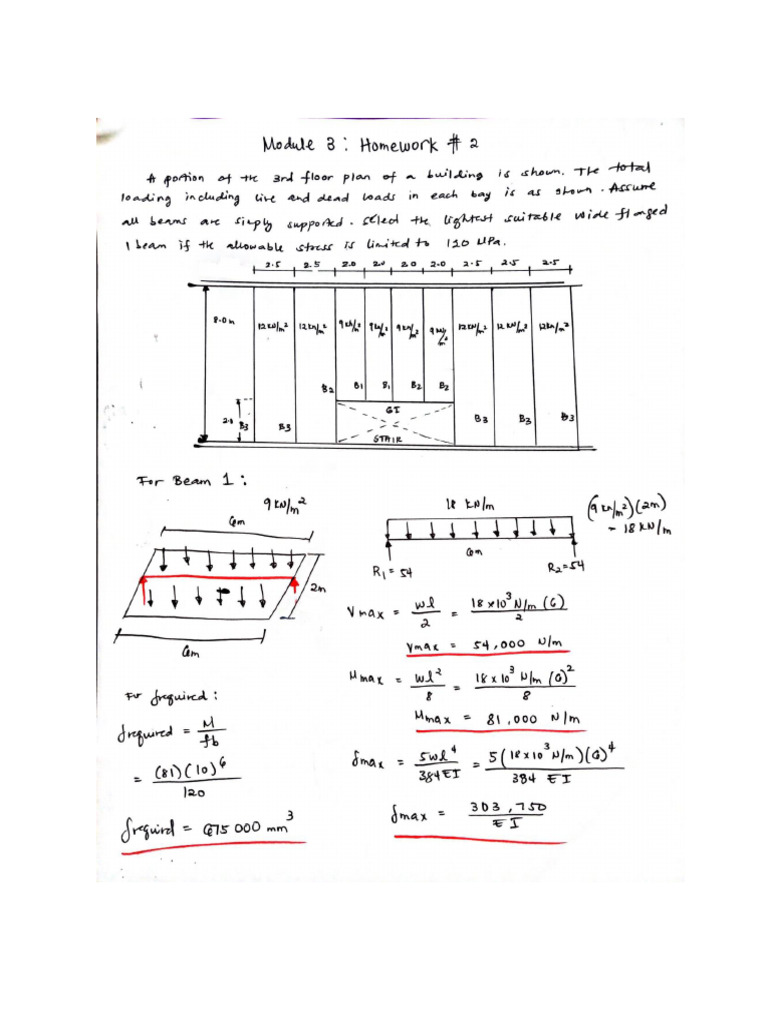 Module 3 : Homework # 2
A portion of the 3rd floor plan of a building is shown. The total
loading including live and dead loads in each bay is as shown. Assume
all beams are simply supported. Select the lightest suitable wide flanged
I beam if the allowable stress is limited to 120 MPa.
2.5 2.5 2.0 2.0 2.0 2.0 2.5 2.5 2.5
8.0 m 12 kN/m² 12 kN/m² 9 kN/m² 9 kN/m² 9 kN/m² 9 kN/m² 12 kN/m² 12 kN/m² 12 kN/m²
B2 B1 B1 B2 B2
G1
2.0 B3 B3 B3 B3 B3
STAIR
For Beam 1 :
9 kN/m²
6m
2m
6m
18 kN/m
(9 kN/m²)(2m)
= 18 kN/m
6m
R1 = 54 R2 = 54
Vmax = wl/2 = 18x10³ N/m (6)/2
Vmax = 54,000 N/m
Mmax = wl²/8 = 18 x 10³ N/m (6)²/8
Mmax = 81,000 N/m
δmax = 5wl⁴/384EI = 5(18x10³ N/m)(6)⁴/384 EI
δmax = 303,750/EI
For Srequired :
Srequired = M/fb
= (81)(10)⁶/120
Srequird = 675 000 mm³